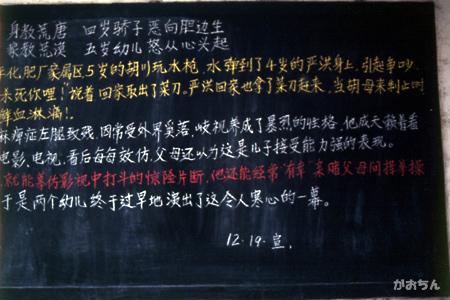 身教荒唐 四岁骄子恶向胆边生
家教荒漠 五岁幼儿怒从心头起
年化肥厂家属区,5岁的胡川玩水枪,水弹到了4岁的严洪身上,引起争吵。
杀死你哩!"说着回家取出了菜刀。严洪回家也拿了菜刀赶来,当胡母来制止时
鲜血淋漓!
麻痹症左腿致残,因常受外界奚落,歧视养成了暴烈的性格,他成天赖着看
电影,电视,看后每每效仿,父母还认为这是儿子接受能力强的表现。
就能摹仿影视中打斗的惊险片断,他还能经常"有幸"亲睹父母间摆拳操
于是两个幼儿终于过早地演出了这令人寒心的一幕。
12.19.宣.
がおちん